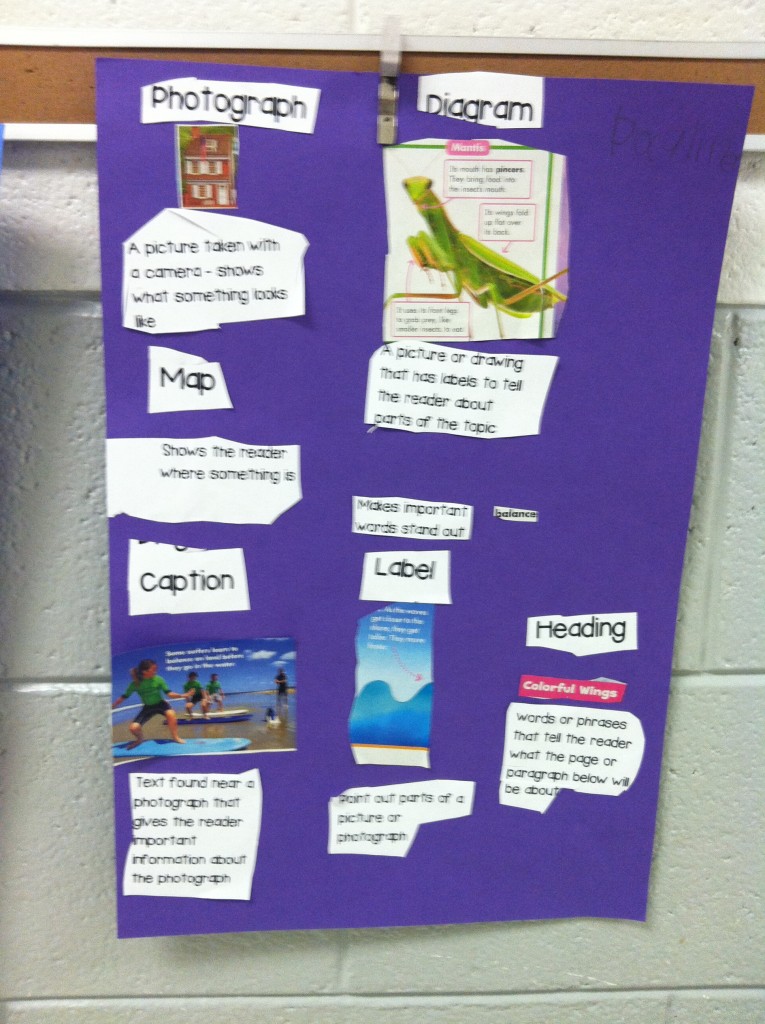 Photograph
A picture taken with
a camera - shows
what something looks
like
Map
Shows the reader
where something is
Caption
Some surfers learn to
balance on land before
they go in the water.
Text found near a
photograph that
gives the reader
important
information about
the photograph
Diagram
Mantis
Its mouth has pincers.
They bring food into
the insect's mouth.
Its wings fold
up flat over
its back.
It uses its front legs
to grab prey, like
smaller insects, to eat.
A picture or drawing
that has labels to tell
the reader about
parts of the topic
Makes important
words stand out
balance
Label
As the waves
get closer to the
shore, they get
taller. They move
Point out parts of a
picture or
photograph
Heading
Colorful Wings
words or phrases
that tell the reader
what the page or
paragraph below will
be about